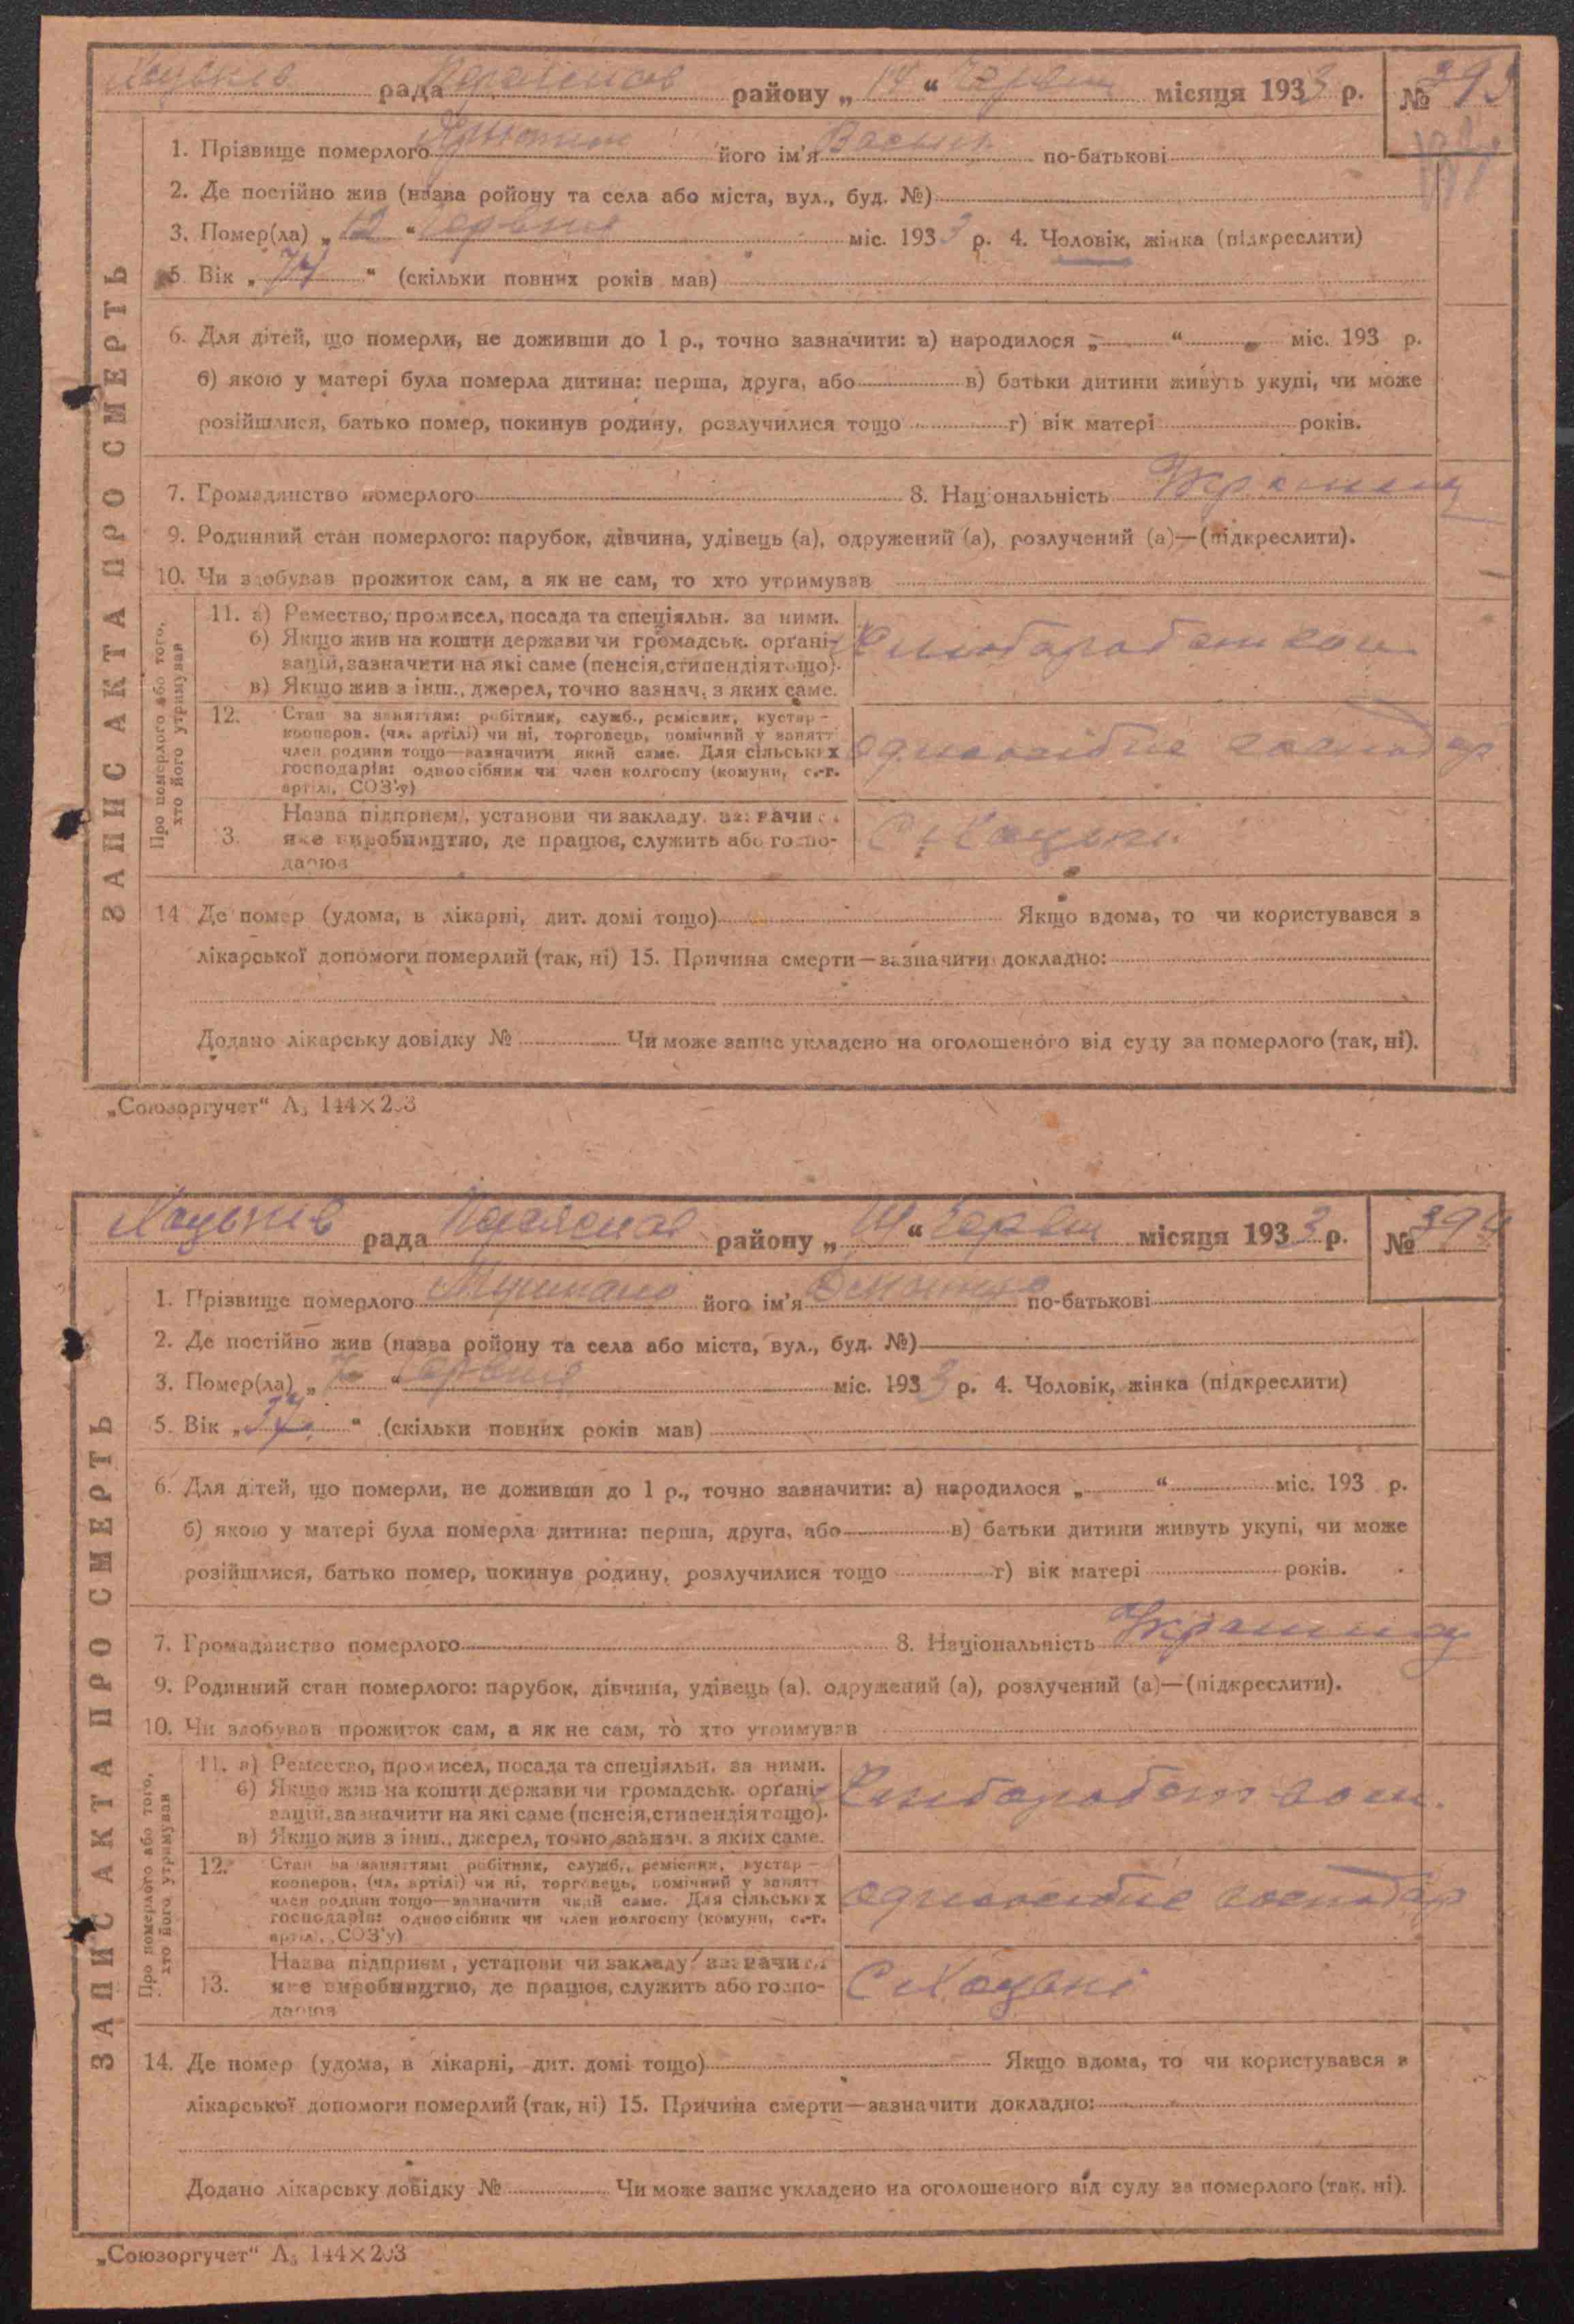 рада району „ 14 “ Червня місяця 1933 р. № 393
1. Прізвище померлого його ім'я Василь по-батькові
2. Де постійно жив (назва ройону та села або міста, вул., буд. №)
3. Помер(ла) „ 12 “ Червня міс. 1933 р. 4. Чоловік, жінка (підкреслити)
5. Вік „ 74 “ (скільки повних років мав)
6. Для дітей, що померли, не доживши до 1 р., точно зазначити: а) народилося „ “ міс. 193 р.
б) якою у матері була померла дитина: перша, друга, або в) батьки дитини живуть укупі, чи може
розійшлися, батько помер, покинув родину, розлучилися тощо г) вік матері років.
7. Громадянство померлого 8. Національність Українец
9. Родинний стан померлого: парубок, дівчина, удівець (а), одружений (а), розлучений (а)—(підкреслити).
10. Чи здобував прожиток сам, а як не сам, то хто утримував
ЗАПИС АКТА ПРО СМЕРТЬ
Про померлого або того,
хто його утримував
11. а) Ремество, промисел, посада та спеціяльн. за ними.
б) Якщо жив на кошти держави чи громадськ. органі-
зацій, зазначити на які саме (пенсія, стипендія тощо).
в) Якщо жив з інш., джерел, точно зазнач, з яких саме.
12. Стан за заняттям: робітник, служб., ремісник, кустар—
кооперов. (чл. артілі) чи ні, торговець, помічний у занятт
член родини тощо—зазначити який саме. Для сільських
господарів: одноосібник чи член колгоспу (комуни, с.-г.
артілі, СОЗ'у)
одноосібне господар
Назва підприєм., установи чи закладу, зазначити
3. яке виробництво, де працює, служить або госпо-
дарює
14 Де помер (удома, в лікарні, дит. домі тощо) Якщо вдома, то чи користувався з
лікарської допомоги померлий (так, ні) 15. Причина смерти—зазначити докладно:
Додано лікарську довідку № Чи може запис укладено на оголошеного від суду за померлого (так, ні).
„Союзоргучет“ А5 144×203
рада району „ 14 “ Червня місяця 1933 р. № 394
1. Прізвище померлого його ім'я по-батькові
2. Де постійно жив (назва ройону та села або міста, вул., буд. №)
3. Помер(ла) „ “ Червня міс. 1933 р. 4. Чоловік, жінка (підкреслити)
5. Вік „ 34 “ (скільки повних років мав)
6. Для дітей, що померли, не доживши до 1 р., точно зазначити: а) народилося „ “ міс. 193 р.
б) якою у матері була померла дитина: перша, друга, або в) батьки дитини живуть укупі, чи може
розійшлися, батько помер, покинув родину, розлучилися тощо г) вік матері років.
7. Громадянство померлого 8. Національність Українец
9. Родинний стан померлого: парубок, дівчина, удівець (а). одружений (а), розлучений (а)—(підкреслити).
10. Чи здобував прожиток сам, а як не сам, то хто утримував
ЗАПИС АКТА ПРО СМЕРТЬ
Про померлого або того,
хто його утримував
11. а) Ремество, промисел, посада та спеціяльн. за ними.
б) Якщо жив на кошти держави чи громадськ. органі-
зацій, зазначити на які саме (пенсія, стипендія тощо).
в) Якщо жив з інш., джерел, точно зазнач. з яких саме.
12. Стан за заняттям: робітник, служб., ремісник, кустар—
кооперов. (чл. артілі) чи ні, торговець, помічний у занятт
член родини тощо—зазначити який саме. Для сільських
господарів: одноосібник чи член колгоспу (комуни, с.-г.
артілі, СОЗ'у)
одноосібне господар
Назва підприєм, установи чи закладу, зазначити
13. яке виробництво, де працює, служить або госпо-
дарює
14. Де помер (удома, в лікарні, дит. домі тощо) Якщо вдома, то чи користувався з
лікарської допомоги померлий (так, ні) 15. Причина смерти—зазначити докладно:
Додано лікарську довідку № Чи може запис укладено на оголошеного від суду за померлого (так, ні).
„Союзоргучет“ А5 144×203